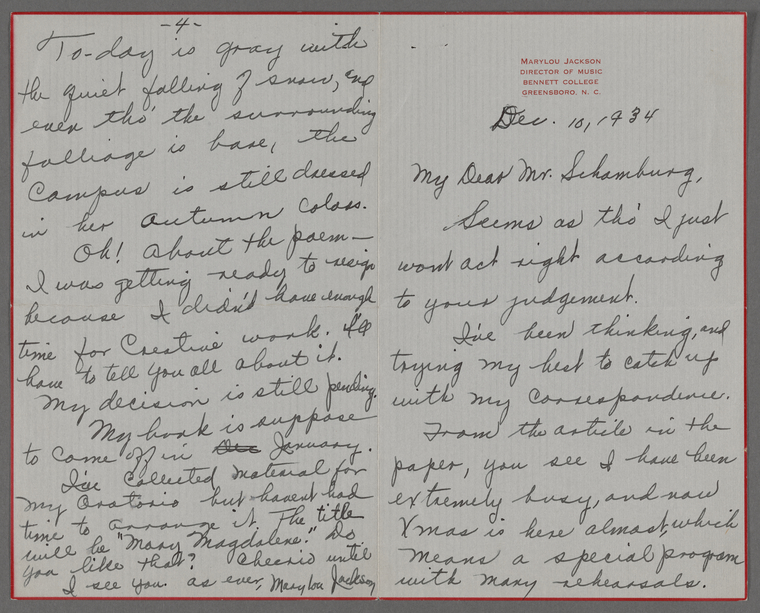 -4-
To-day is gray with
the quiet falling of snow, and
even tho' the surrounding
falliage is bare, the
Campus is still dressed
in her autumn colors.
Oh! About the poem—
I was getting ready to resign
because I didn't have enough
time for Creative work. I'll
have to tell you all about it.
My decision is still pending.
My book is suppose
to come off in Dec January.
I've collected material for
my Oratorio but havent had
time to arrange it. The title
will be "Mary Magdalene." Do
you like that? Cheerio until
I see you. as ever, Marylou Jackson
MARYLOU JACKSON
DIRECTOR OF MUSIC
BENNETT COLLEGE
GREENSBORO, N. C.
Dec. 10, 1934
My Dear Mr. Schamburg,
Seems as tho' I just
wont act right according
to your judgement.
I've been thinking, and
trying my best to catch up
with my correspondence.
From the article in the
paper, you see I have been
extremely busy, and now
Xmas is here almost, which
means a special program
with many rehearsals.